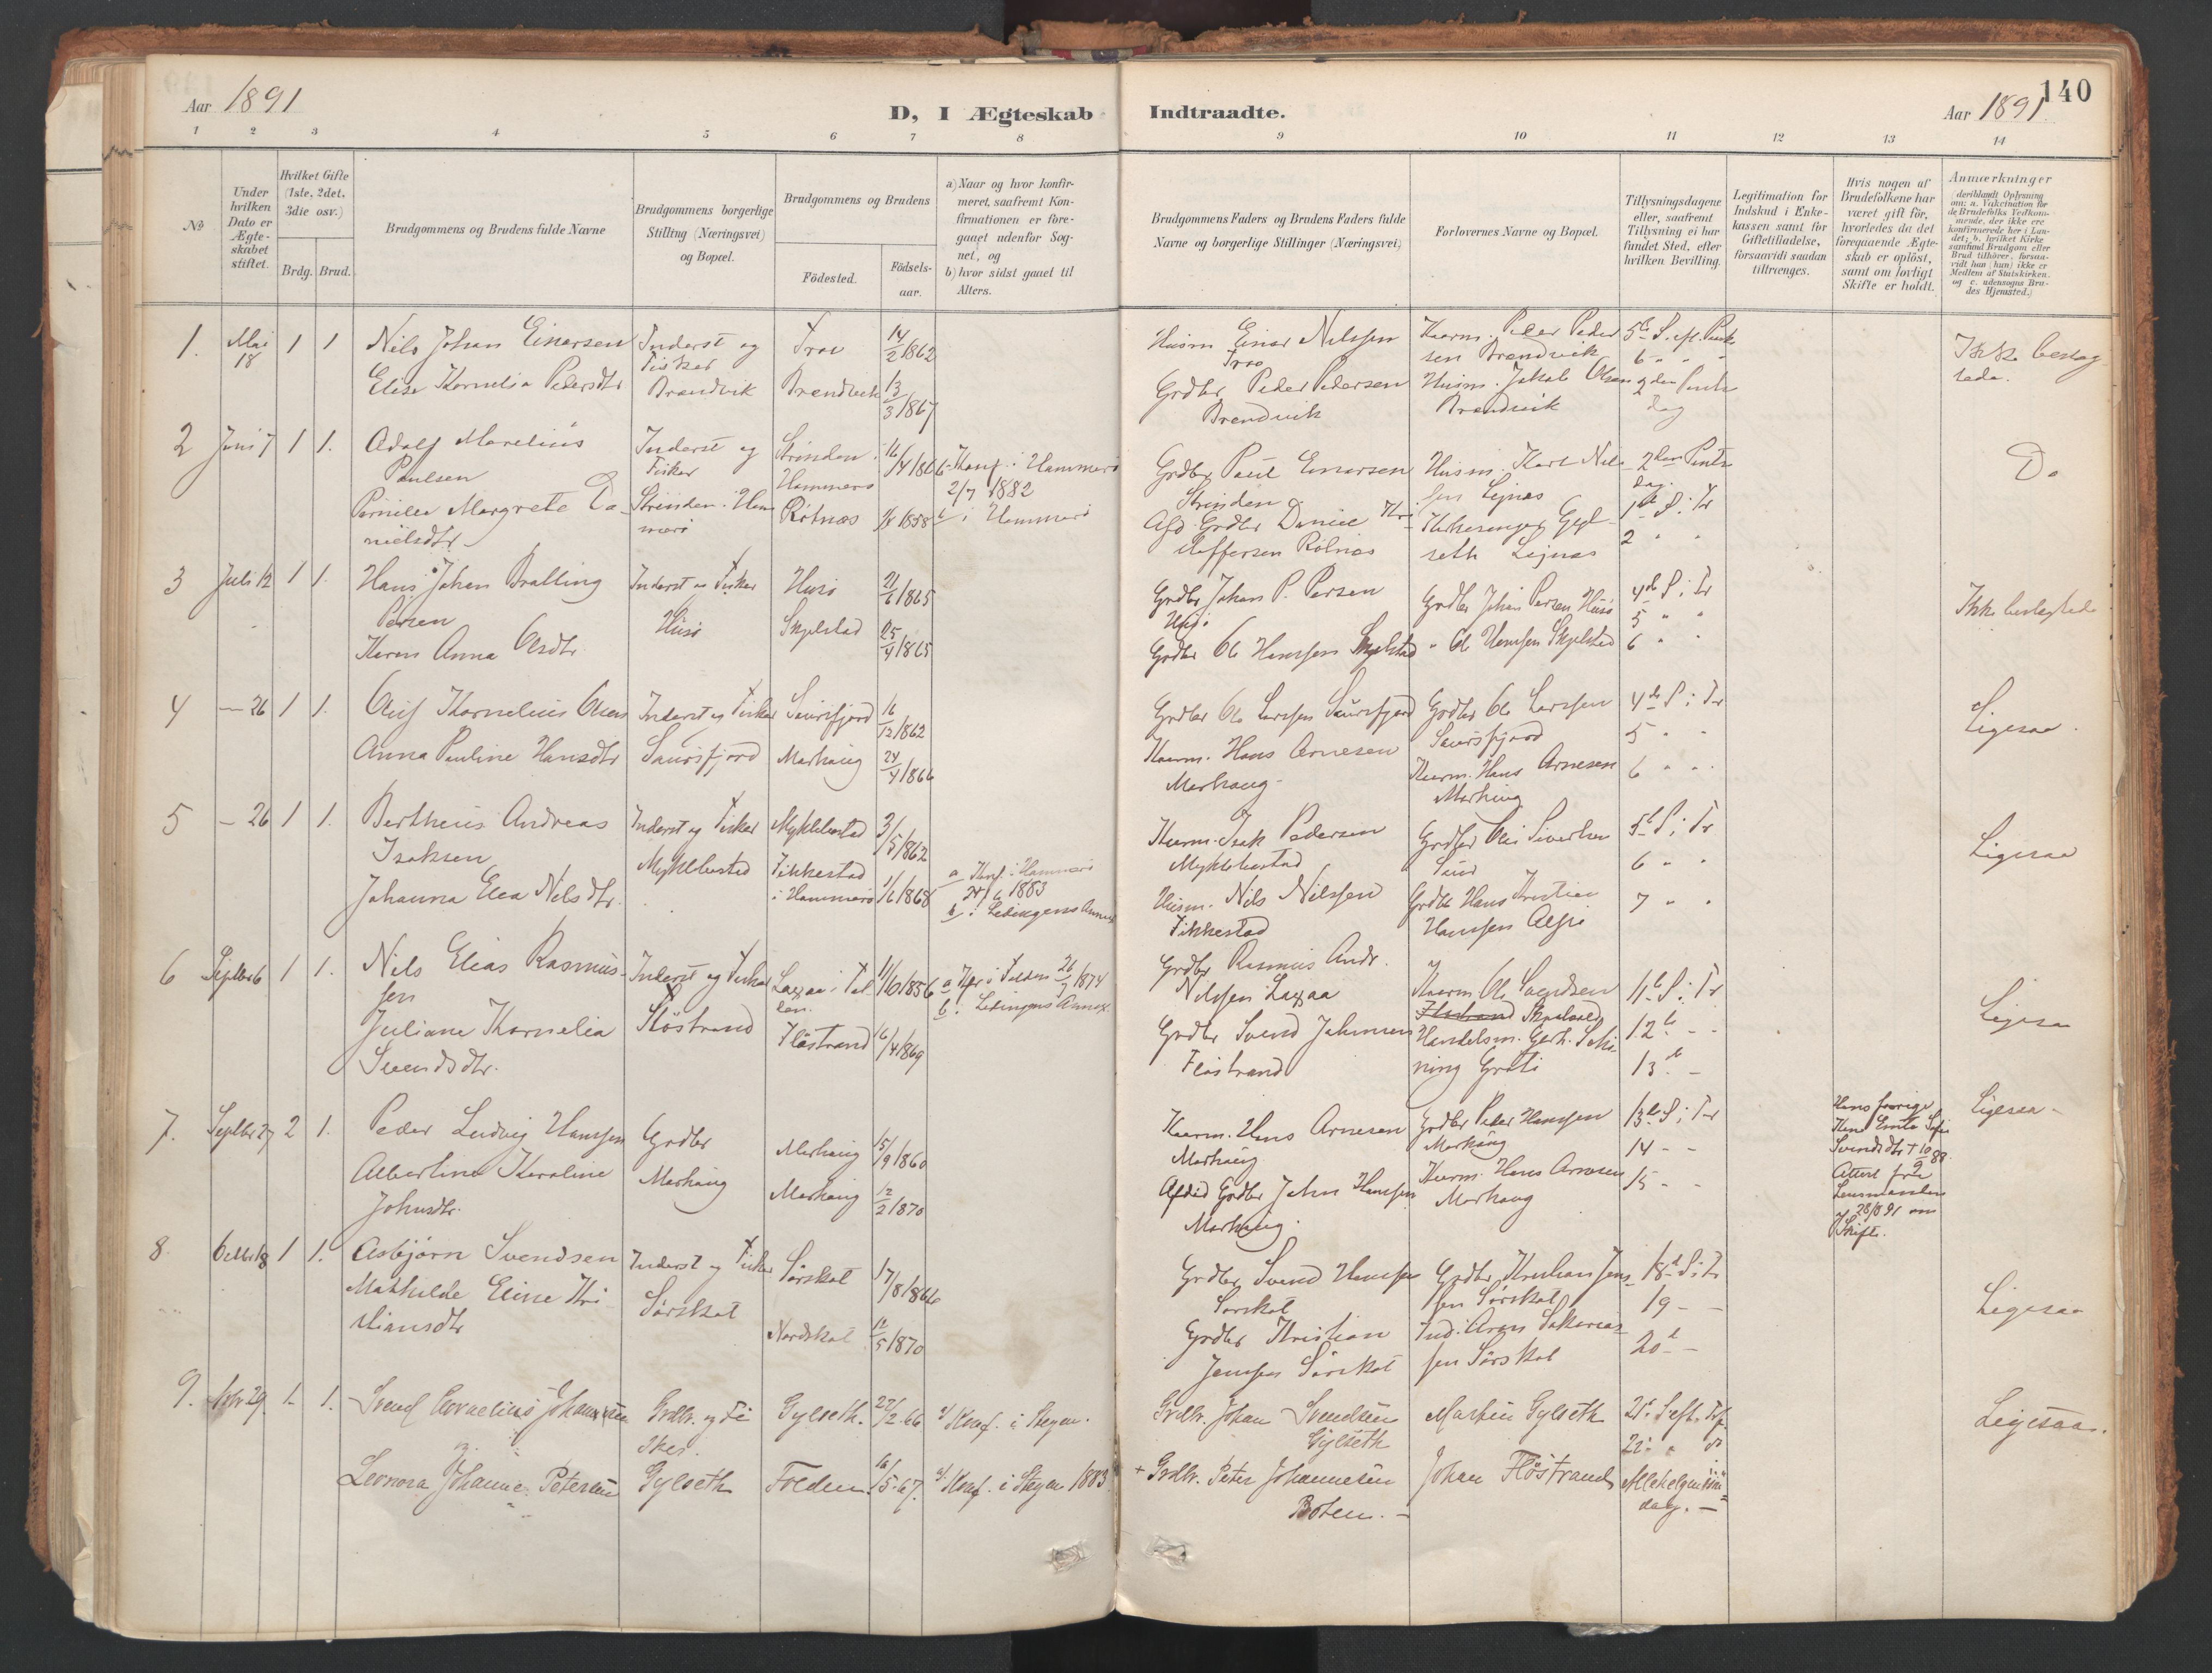 140
Aar 1891
D, I Ægteskab Indtraadte.
Aar 1891
1 2 3 4 5 6 7 8 9 10 11 12 13 14
No
Under hvilken Dato er Ægteskabet stiftet.
Hvilket Gifte (1ste, 2det, 3die osv.)
Brdg. Brud.
Brudgommens og Brudens fulde Navne
Brudgommens borgerlige Stilling (Næringsvei) og Bopæl.
Brudgommens og Brudens
Födested.
Födsels-aar.
a) Naar og hvor konfirmeret, saafremt Konfirmationen er foregaaet udenfor Sognet, og
b) hvor sidst gaaet til Alters.
Brudgommens Faders og Brudens Faders fulde Navne og borgerlige Stillinger (Næringsvei)
Forlovernes Navne og Bopæl.
Tillysningsdagene eller, saafremt Tillysning ei har fundet Sted, efter hvilken Bevilling.
Legitimation for Indskud i Enkekassen samt for Giftetilladelse, forsaavidt saadan tiltrænges.
Hvis nogen af Brudefolkene har været gift för, hvorledes da det foregaaende Ægteskab er oplöst, samt om lovligt Skifte er holdt.
Anmærkninger
(deriblandt Oplysning om: a. Vakcination for de Brudefolks Vedkommende, der ikke ere konfirmerede her i Landet; b. hvilket Kirkesamfund Brudgom eller Brud tilhörer, forsaavidt han (hun) ikke er Medlem af Statskirken, og c. udensogns Brudes Hjemsted.)
1. Mai 18 1 1
Nils Johan Einarsen
Elise Kornelia Pedersdtr
Inderst og Fisker
Brændvik
Trae 14/2 1862
Brendvik 13/3 1867
Husm Einar Nilssen
Grdbr Peder Pedersen
Brendvik
Kaarm. Peder Pedersen Brendvik
Husm. Jakob Olsen
Brændvik
5te S. eft. Pints
6 " "
2den Pints dag
Ikke beslægtede.
2 Juni 7 1 1.
Adolf Marelius
Paulsen
Pernilla Margrete Danielsdtr
Inderst og Fisker
Strinden i Hammerö
Strinden i Hammerö 16/4 1866
Rötnæs 1858
Konf. i Hammerö
2/7 1882
b i Hammerö
Grdbr Paul Einarsen
Strinden
Afd. Grdbr Daniel Kristoffersen Rötnæs
Husm. Karl Nilssen Leinæs
Kirkesanger Gylseth Leinæs
2den Pints dag.
1ste S. i Tr
2 " "
Do
3 Juli 12 1 1.
Hans Johan Bratting
Persen
Karen Anna Olsdtr.
Inderst og Fisker
Husö
Husö 21/6 1865
Skjelstad 25/4 1865
Grdbr Johan P. Persen
Husö
Grdbr Ole Hanssen Skjelstad
Grdbr Johan Persen Husö
" Ole Hanssen Skjelstad
4de S. i Tr
5 " "
6 " "
Ikke beslægtede
4 — 26 1 1.
Oluf Kornelius Olsen
Anna Pauline Hansdtr
Inderst og Fisker
Saursfjord
Saursfjord 16/12 1862
Markaug 24/4 1866
Grdbr Ole Larssen Saursfjord
Kaarm. Hans Arnesen
Markaug
Grdbr Ole Larssen
Saursfjord
Kaarm. Hans Arnesen
Markaug
4de S i Tr
5 " "
6 " "
Ligesaa.
5 — 26 1 1.
Bertheus Andreas
Isaksen
Johanna Elea Nilsdtr.
Inderst og Fisker
Myklebustad
Myklebustad 3/5 1862
Fikkestad
i Hammerö 1/6 1868
a Konf. i Hammerö
24/6 1883
b. i Lödingens Annex
Kaarm. Isak Pedersen
Myklebustad
Husm. Nils Nilssen
Fikkestad
Grdbr Ole Sivertsen
Sund
Grdbr Hans Kristian
Hanssen
5te S. i Tr
6 " "
7 " "
Ligesaa
6 Septbr 6 1 1.
Nils Elias Rasmussen
Juliane Kornelia
Svendsdtr.
Inderst og Fisker
Flöstrand
Laxaa i Folden. 1/10 1856
Flöstrand 16/4 1869
a Kfr i Folden 26/7 1874
b. i Lödingens Annex.
Grdbr Rasmus Andr.
Nilssen Laxaa
Grdbr Svend Johnsen
Flöstrand
Kaarm. Ole Svendsen
Handelsm. Gerh. Schöning Gröti
11te S. i Tr
12te - -
13de -
Ligesaa
7. Septbr 27 2 1.
Peder Ludvig Hanssen
Albertine Karoline
Johnsdtr.
Grdbr
Markaug
Markaug 15/9 1860
Markaug 12/2 1870
Kaarm. Hans Arnesen
Markaug
Afdöd Grdbr John Hanssen
Markaug.
Grdbr Peder Hanssen
Markaug
Kaarm. Hans Arnesen
Markaug
13de S. i Tr
14 - -
15 - -
Hans forrige
Kone
Svendsdtr † 10/9 88.
Attest fra
Lensmanden
28/8 91 om
Skifte.
Ligesaa -
8. Octbr 18 1 1.
Asbjørn Svendsen
Mathilde Eline Kristiansdtr
Inderst og Fisker
Sörskot
Sörskot 17/8 1866
Nordskot 11/5 1870
Grdbr Svend Hanssen
Sörskot
Grdbr Kristian
Jenssen Sörskot
Grdbr Kristian Jenssen Sörskot
Ind. Arne Sakariassen Sörskot
18de S. i Tr
19 - -
20de -
Ligesaa
9. Nvbr 29. 1. 1.
Svend Cornelius Johannesen
Leonora Johanne Petersen
Grdbr. og Fisker.
Gylseth
Gylseth. 22/12 66
Folden. 10/5 67.
a/ Konf. i Stegen.
a/ Konf. i Stegen 1883
Grdbr. Johan Svendsen
Gylseth
+ Grdbr. Peter Johannesen
Botten. -
Martin Gylseth
Johan Flöstrand
21. S. eft. Trf.
22. " do
Allehelgens dag. —
Ligesaa.